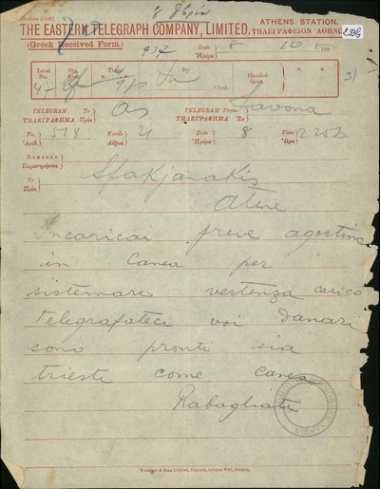 8 8βρίου
THE EASTERN TELEGRAPH COMPANY, LIMITED.
ATHENS. STATION.
ΤΗΛΕΓΡΑΦΕΙΟΝ ΑΘΗΝΩΝ
(Greek Received Form.)
Date 8 10
Ἡμέρα
Local No.
Time
By
Clerk
Hundred
TELEGRAM To As
TELEGRAM From Savona
ΤΗΛΕΓΡΑΦΗΜΑ Πρὸς
ΤΗΛΕΓΡΑΦΗΜΑ Ἐκ
No. 518 Words 21 Date 8 Time
Ἀριθ. Λέξεις Ἡμέρα Ὥρα
REMARKS
Παρατηρήσεις
To Sfakjanakis
Πρὸς
Atene
Incaricai freve agostino
in Canea per
sistemare vertenza carico
telegrafateci voi danari
sono pronti sia
trieste come canea
Rabagliati